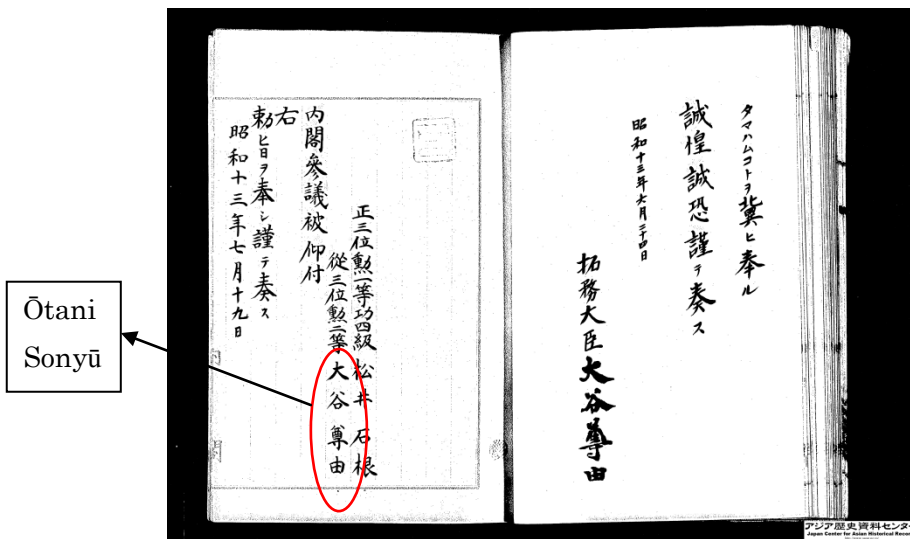 Ōtani
Sonyū
タマハムコトヲ冀ヒ奉ル
誠惶誠恐謹テ奏ス
昭和十三年六月二十四日
拓務大臣大谷尊由
正三位勲一等功四級 松井石根
從三位勲二等 大谷尊由
内閣參議被仰付
右
勅旨ヲ奉シ謹テ奏ス
昭和十三年七月十九日
アジア歴史資料センター
Japan Center for Asian Historical Record